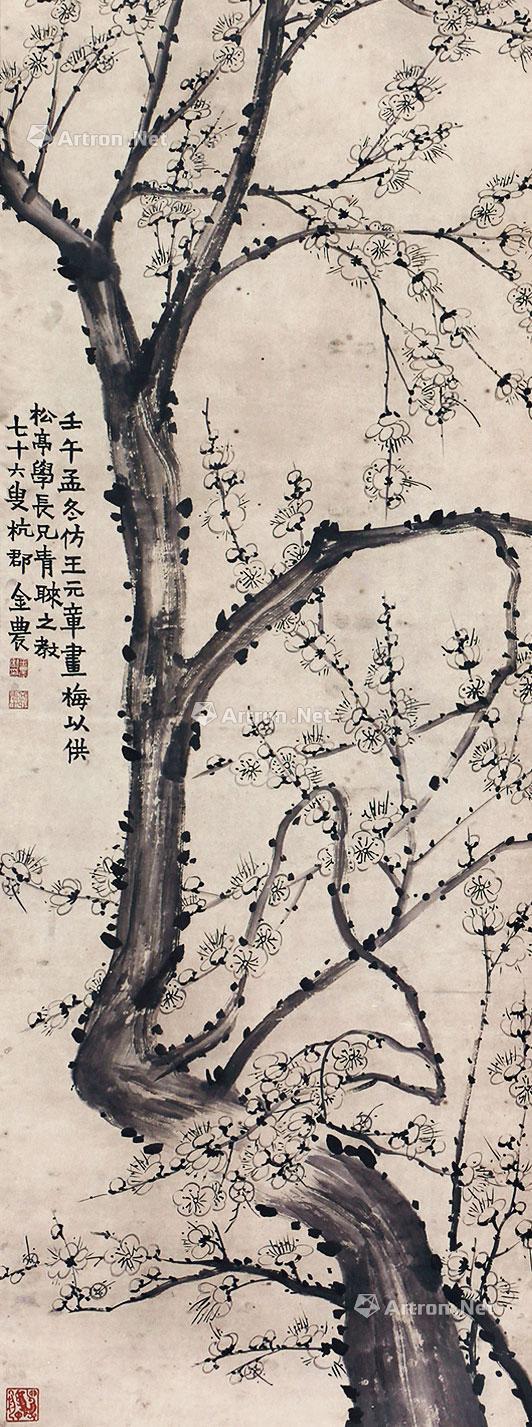 壬午孟冬仿王元章畫梅以供
松亭學長兄青睞之教
七十六叟杭郡金農
Artron.Net
Artron.Net
Artron.Net